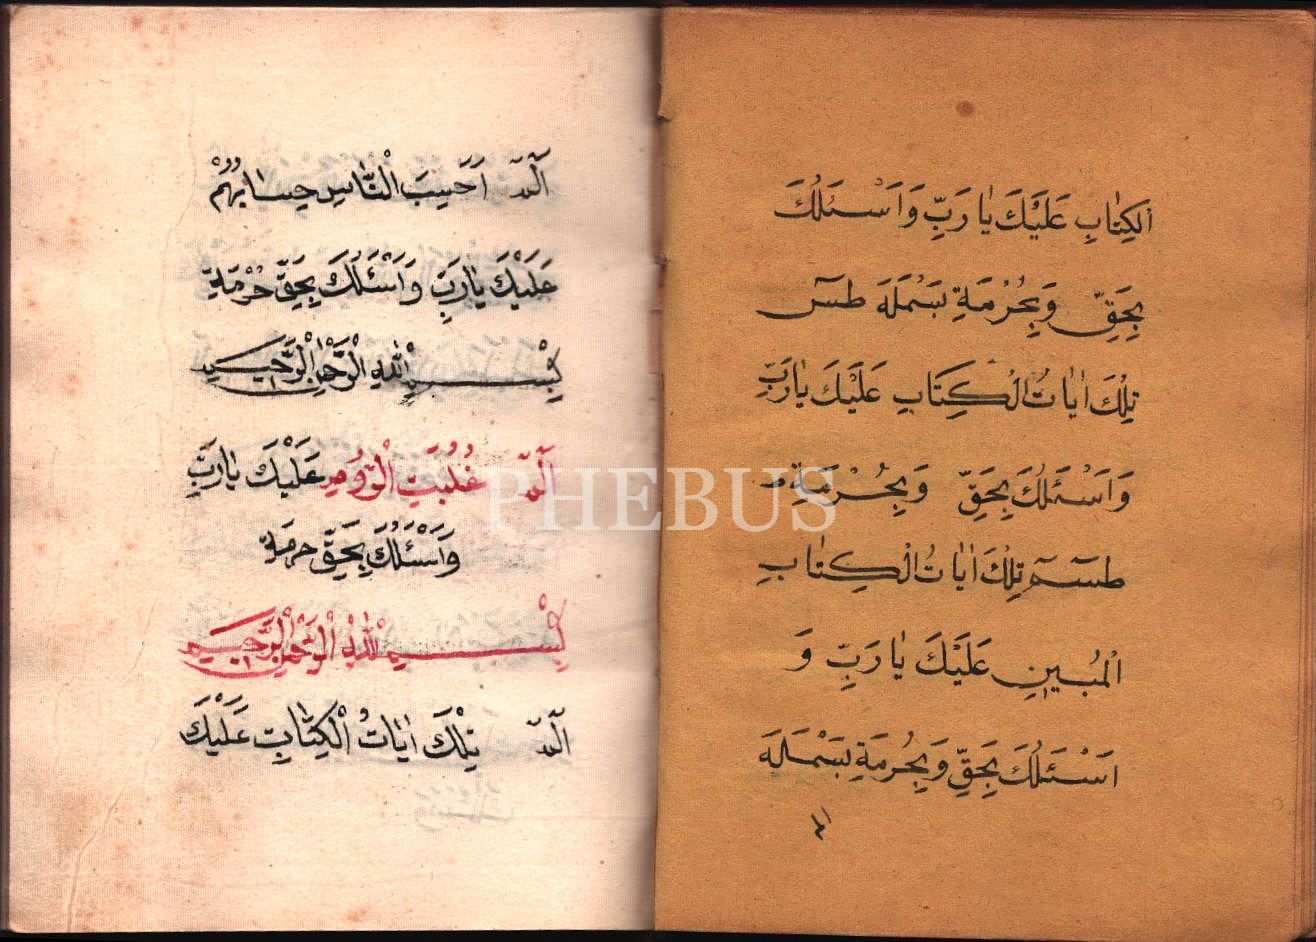 اَلكِتٰابِ عَلَيْكَ يٰا رَبِّ وَاَسْئَلُكَ
بِحَقِّ وَبِحُرْمَةِ بَسْمَلَه طٰسٓ
تِلْكَ اٰيٰاتُ الْكِتَابِ عَلَيْكَ يٰارَبِّ
وَاَسْئَلُكَ بِحَقِّ وَبِحُرْمَةِ
طٰسٓمٓ تِلْكَ اٰيٰاتُ الْكِتٰابِ
الْمُبٖينِ عَلَيْكَ يٰا رَبِّ وَ
اَسْئَلُكَ بِحَقِّ وَبِحُرمَةِ بَسْمَلَه
الٓمٓ اَحَسِبَ النّٰاسِ حِسٰابُهُمْ
عَلَيْكَ يٰارَبِّ وَاَسْئَلُكَ بِحَقِّ حُرْمَةِ
بِسْمِ اللّٰهِ الرَّحْمٰنِ الرَّحٖيمِ
الٓمٓ غُلِبَتِ الرُّومِ عَلَيْكَ يٰارَبِّ
وَاَسْئَلُكَ بِحَقِّ حرمَةِ
بِسْمِ اللّٰهِ الرَّحْمٰنِ الرَّحٖيمِ
الٓمٓ تِلْكَ اٰيٰاتُ الْكِتٰابِ عَلَيْكَ
PHEBUS